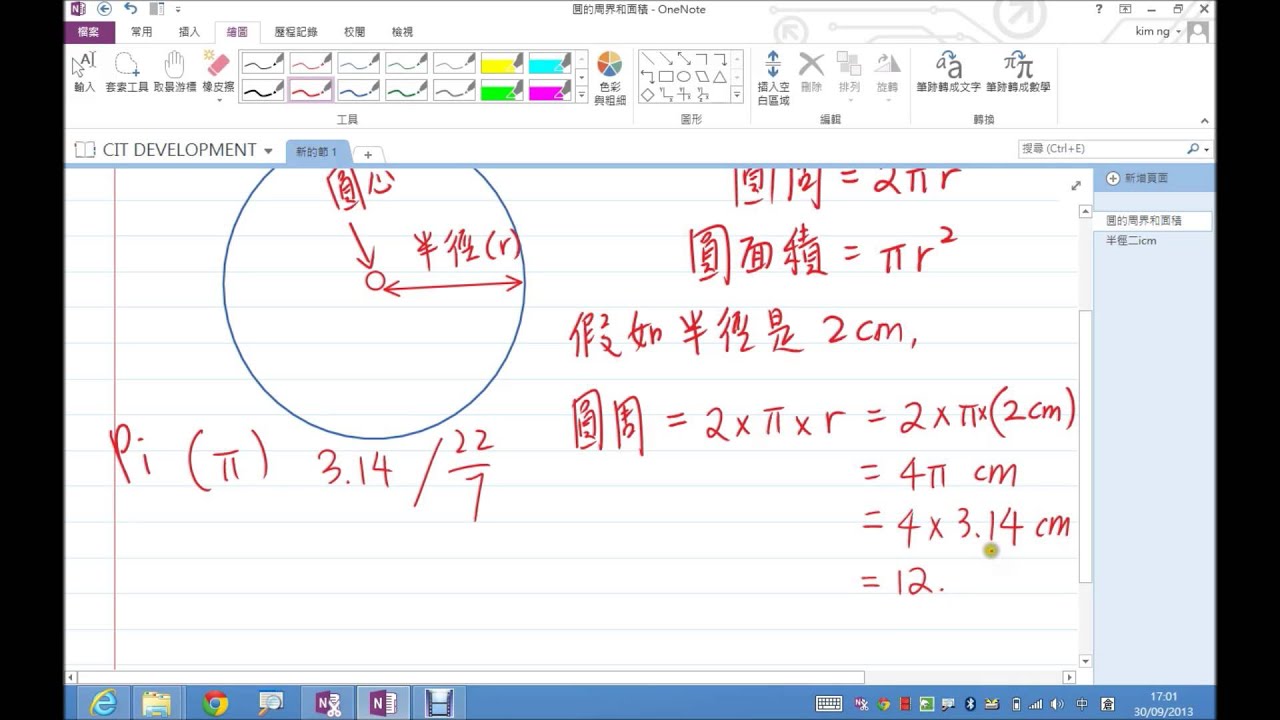 圓的周界和面積 - OneNote
檔案 常用 插入 繪圖 歷程記錄 校閱 檢視 kim ng
輸入 套索工具 取景游標 橡皮擦 色彩與粗細 插入空白區域 刪除 排列 旋轉 筆跡轉成文字 筆跡轉成數學
工具 圖形 編輯 轉換
CIT DEVELOPMENT 新的節 1 搜尋 (Ctrl+E)
新增頁面
圓的周界和面積
半徑二icm
圓心
半徑(r)
圓周 = 2πr
圓面積 = πr²
假如半徑是 2cm,
圓周 = 2×π×r = 2×π×(2cm)
= 4π cm
= 4 × 3.14 cm
= 12.
Pi (π) 3.14 / 22/7
17:01
30/09/2013
中 倉